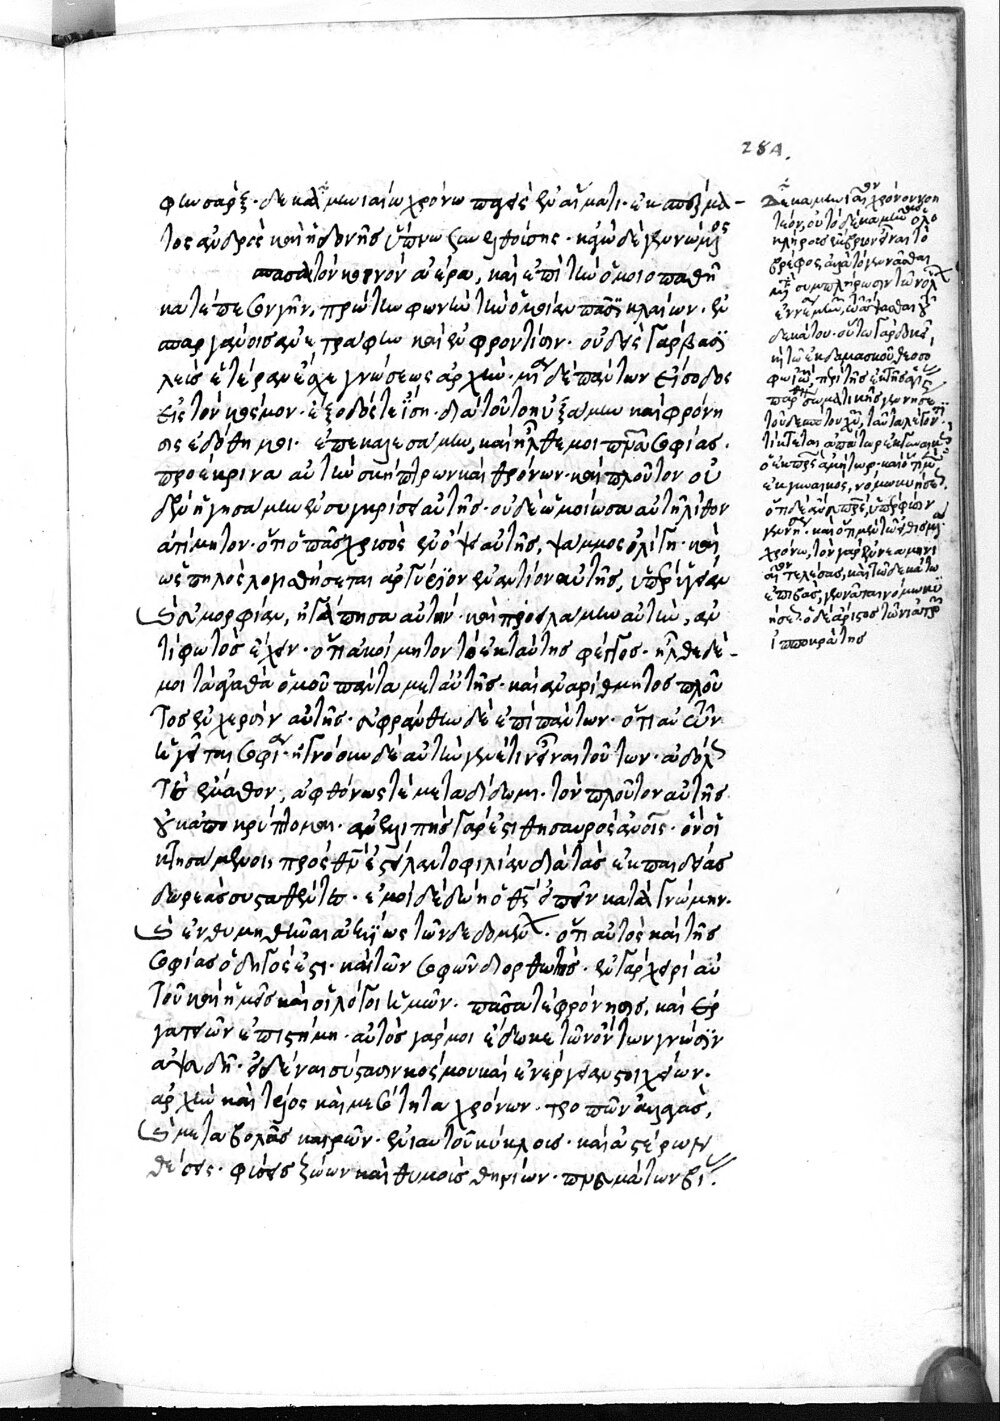 284.
φην σάρξ· δεκαμηνιαίω χρόνω παγεὶς ἐν αἵματι· ἐκ σπέρμα-
τος ἀνδρὸς καὶ ἡδονῆς ὕπνω συνελθούσης· κἀγὼ δὲ γενόμενος
ἔσπασα τὸν κοινὸν ἀέρα, καὶ ἐπὶ τὴν ὁμοιοπαθῆ
κατέπεσον γῆν, πρώτην φωνὴν τὴν ὁμοίαν πᾶσι κλαίων· ἐν
σπαργάνοις ἀνετράφην καὶ ἐν φροντίσιν· οὐδεὶς γὰρ βασι
λεὺς ἑτέραν ἔσχε γενέσεως ἀρχήν· μία δὲ πάντων εἴσοδος
εἰς τὸν κόσμον· ἔξοδός τε ἴση· διὰ τοῦτο ηὐξάμην καὶ φρόνη
σις ἐδόθη μοι· ἐπεκαλεσάμην, καὶ ἦλθέ μοι πνεῦμα σοφίας·
προέκρινα αὐτὴν σκήπτρων καὶ θρόνων· καὶ πλοῦτον οὐ
δὲν ἡγησάμην ἐν συγκρίσει αὐτῆς· οὐδὲ ὡμοίωσα αὐτῆ λίθον
ἀτίμητον· ὅτι ὁ πᾶς χρυσὸς ἐν ὄψει αὐτῆς, ψάμμος ὀλίγη· καὶ
ὡς πηλὸς λογισθήσεται ἄργυρος ἐναντίον αὐτῆς, ὑπὲρ ὑγείαν
καὶ εὐμορφίαν, ἠγάπησα αὐτήν· καὶ προειλάμην αὐτὴν, ἀν
τὶ φωτὸς ἔχειν· ὅτι ἀκοίμητον τὸ ἐκ ταύτης φέγγος· ἦλθε δέ-
μοι τὰ ἀγαθὰ ὁμοῦ πάντα μετ' αὐτῆς· καὶ ἀναρίθμητος πλοῦ
τος ἐν χερσὶν αὐτῆς· εὐφράνθην δὲ ἐπὶ πάντων· ὅτι αὐτῶν
ἡγεῖται σοφία· ἠγνόουν δὲ αὐτὴν γενέτιν εἶναι τούτων· ἀδόλως
τὲ ἔμαθον, ἀφθόνως τὲ μεταδίδωμι· τὸν πλοῦτον αὐτῆς
οὐκ ἀποκρύπτομαι· ἀνεκλιπὴς γάρ ἐστι θησαυρὸς ἀνοις· ὃν οἱ
κτησάμενοι πρὸς θν ἐστείλαντο φιλίαν διὰ τὰς ἐκ παιδείας
δωρεὰς συσταθέντες· ἐμοὶ δὲ δώη ὁ θς εἰπεῖν κατὰ γνώμην·
καὶ ἐνθυμηθῆναι ἀξίως τῶν δεδομένων· ὅτι αὐτὸς καὶ τῆς
σοφίας ὁδηγός ἐστι· καὶ τῶν σοφῶν διορθωτής· ἐν γὰρ χειρὶ αὐ
τοῦ καὶ ἡμεῖς καὶ οἱ λόγοι ἡμῶν· πᾶσα τε φρόνησις, καὶ ἐρ
γατειῶν ἐπιστήμη· αὐτὸς γάρ μοι ἔδωκε τῶν ὄντων γνῶσιν
ἀψευδῆ· εἰδέναι σύστασιν κόσμου καὶ ἐνέργειαν στοιχείων·
ἀρχὴν καὶ τέλος καὶ μεσότητα χρόνων· τροπῶν ἀλλαγὰς,
καὶ μεταβολὰς καιρῶν· ἐνιαυτοῦ κύκλοις· καὶ ἀστέρων
θέσεις· φύσεις ζώων καὶ θυμοὺς θηρίων· πνευμάτων βί
Δεκαμηνιαῖον χρόνον νοη
τέον, οὐ τὸ δέκα μησὶν ὁλο
κλήροις ἔμβρυον εἶναι τὸ
βρέφος, ἀλλὰ τὸ γεννᾶσθαι
συμπλήρωσιν τῶν ὅλων
ἐννέα μηνῶν, ἅψασθαι
δεκάτου· οὕτω γὰρ δοκεῖ
καὶ τῷ ἐκ δαμασκοῦ θεοσό
φω
τίκτεται ἀπάτωρ ἐκ γυναικὸς
ὁ ἐκ πρς ἀμήτωρ·
ἐκ γυναικὸς, νόμω κυήσεως·
χρόνω, τὸν γὰρ ἐννεαμηνι
αῖον τελέσας, καὶ τῶ δεκάτω
ἐπιβὰς, γεννᾶται νόμω κυ
ήσεως· ὁ δὲ ἄριστος τῶν ἰατρῶν
ἱπποκράτης